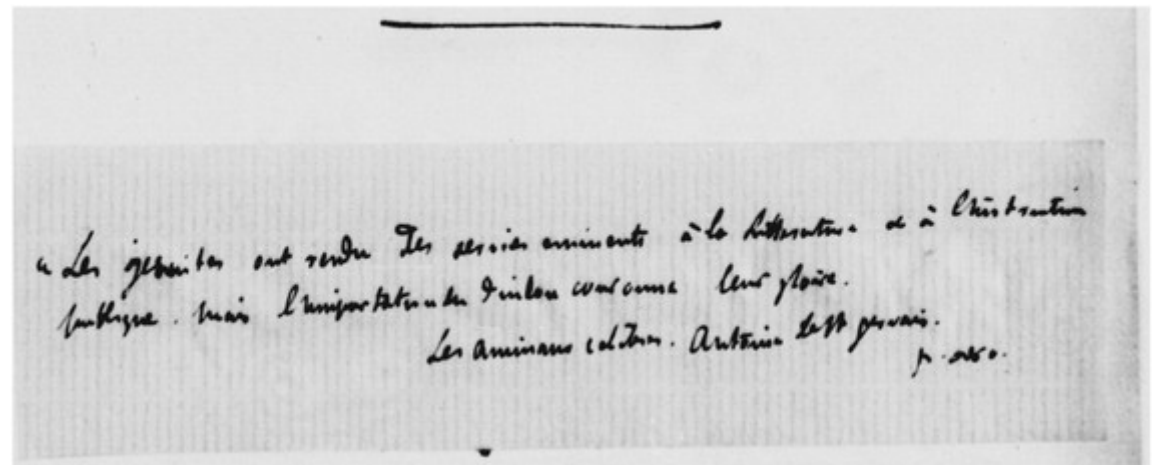 « Les jesuites ont rendu des services eminents à la litterature et à l'instruction
publique. mais l'importation du dindon couronne leur gloire.
Les animaux célèbres. Antoine gervais.
p.